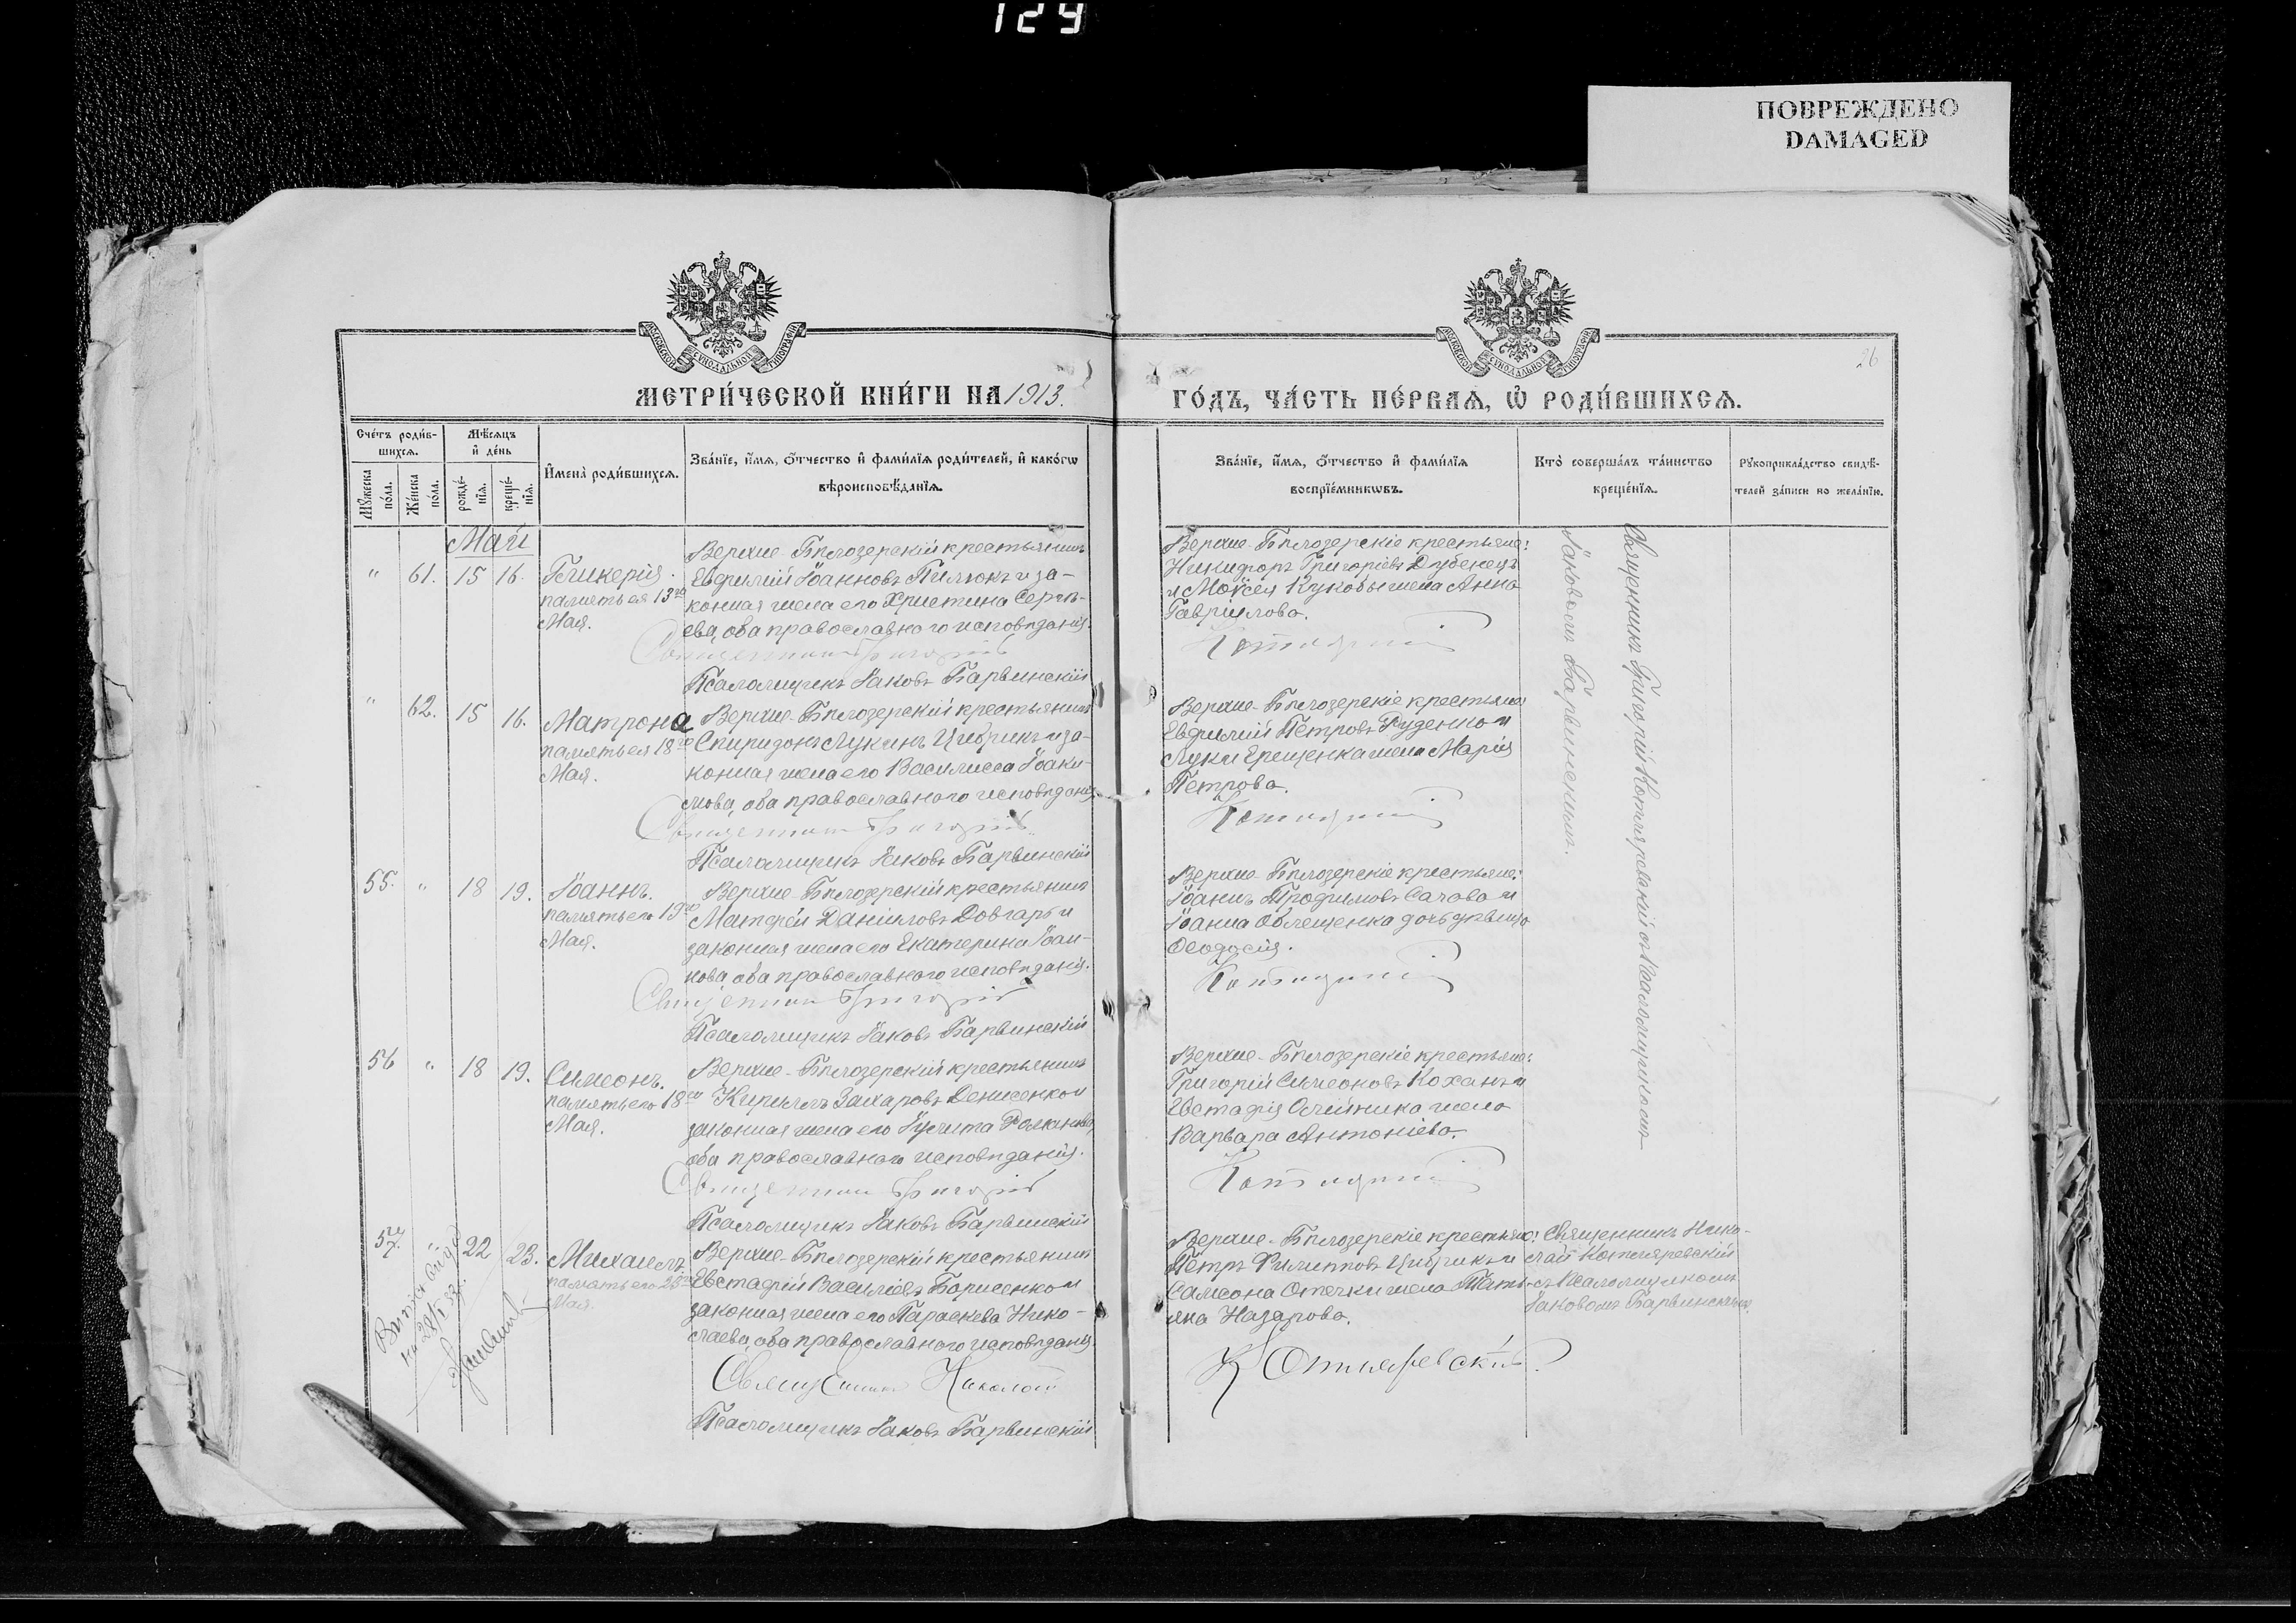 129
ПОВРЕЖДЕНО
DAMAGED
26
МОСКОВСКОЙ СѴНОДАЛЬНОЙ ТИПОГРАФІИ
МОСКОВСКОЙ СѴНОДАЛЬНОЙ ТИПОГРАФІИ
МЕТРИ́ЧЕСКОЙ КНИ́ГИ НА 1913.
ГО́ДЪ, ЧА́СТЬ ПЕ́РВАѦ, Ѡ҆ РОДИ́ВШИХСѦ.
Сче́тъ роди́в-
шихсѧ.
Мѹ́жеска по́ла.
Же́нска по́ла.
Мѣ́сѧцъ
и҆ де́нь
рожде́-
нїѧ.
креще́-
нїѧ.
И҆мена̀ роди́вшихсѧ.
Зва́нїе, и҆́мѧ, ѻ҆́тчество и҆ фами́лїѧ роди́телей, и҆ како́гѡ
вѣроисповѣ́данїѧ.
Зва́нїе, и҆́мѧ, ѻ҆́тчество и҆ фами́лїѧ
воспрїе́мникѡвъ.
Кто̀ соверша́лъ та́инство
креще́нїѧ.
Рѹкоприкла́дство свидѣ́-
телей за́писи по жела́нїю.
Май
" 61. 15 16. Гликерія.
память ея 13го
Мая.
Верхне-Бѣлозерскій крестьянинъ
Евфимій Іоанновъ Пилюкъ и за-
конная жена его Христина Серге-
ева, оба православнаго исповѣданія.
Священникъ Григорій
Псаломщикъ Іаковъ Барвинскій
Верхне-Бѣлозерскіе крестьяне:
Никифоръ Григоріевъ Дубенецъ
и Моѵсея Кукобы жена Анна
Гавріилова.
Котляревскій
" 62. 15 16. Матрона
память ея 18го
Мая.
Верхне-Бѣлозерскій крестьянинъ
Спиридонъ Лукинъ Цибрикъ и за-
конная жена его Василисса Іоаки-
мова, оба православнаго исповѣданія.
Священникъ Григорій
Псаломщикъ Іаковъ Барвинскій
Верхне-Бѣлозерскіе крестьяне:
Евфимій Петровъ Руденко и
Луки Ерещенка жена Марія
Петрова.
Котляревскій
55. " 18 19. Іоаннъ.
память его 19го
Мая.
Верхне-Бѣлозерскій крестьянинъ
Матфей Даніиловъ Довгаръ и
законная жена его Екатерина Іоан-
нова, оба православнаго исповѣданія.
Священникъ Григорій
Псаломщикъ Іаковъ Барвинскій
Верхне-Бѣлозерскіе крестьяне:
Іоаннъ Трофимовъ Салова и
Іоанна Облещенка дочь дѣвица
Ѳеодосія.
Котляревскій
56 " 18 19. Симеонъ.
память его 18го
Мая.
Верхне-Бѣлозерскій крестьянинъ
Кириллъ Захаровъ Денисенко и
законная жена его Іулита Романова,
оба православнаго исповѣданія.
Священникъ Григорій
Псаломщикъ Іаковъ Барвинскій
Верхне-Бѣлозерскіе крестьяне:
Григорій Симеоновъ Коханъ и
Евстафія Олійника жена
Варвара Антоніева.
Котляревскій
Священникъ Григорій Котляревскій съ Псаломщикомъ
Іаковомъ Барвинскимъ.
57. " 22 23. Михаилъ
память его 23го
Мая.
Верхне-Бѣлозерскій крестьянинъ
Евстафій Василіевъ Борисенко и
законная жена его Параскева Нико-
лаева, оба православнаго исповѣданія.
Священникъ Николай
Псаломщикъ Іаковъ Барвинскій
Верхне-Бѣлозерскіе крестьяне:
Петръ Филипповъ Цибрикъ и
Самсона Отечки жена Тать-
яна Назарова.
Котляревскій
Священникъ Нико-
лай Котляревскій
съ Псаломщикомъ
Іаковомъ Барвинскимъ.